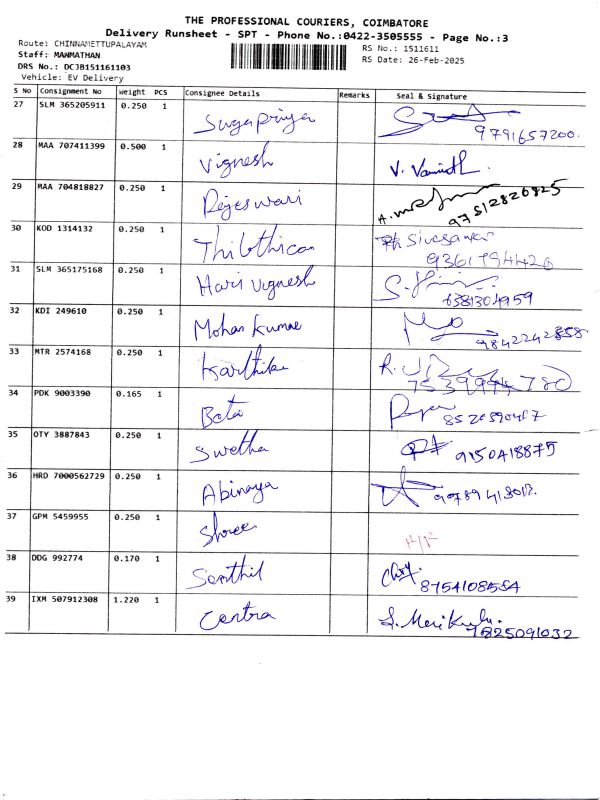 THE PROFESSIONAL COURIERS, COIMBATORE
Delivery Runsheet - SPT - Phone No.:0422-3505555 - Page No.:3
Route: CHINNAMETTUPALAYAM
Staff: MANMATHAN
DRS No.: DCJB151161103
Vehicle: EV Delivery
RS No.: 1511611
RS Date: 26-Feb-2025
S No Consignment No Weight PCS Consignee Details Remarks Seal & Signature
27 SLM 365205911 0.250 1 Sugapriya 9791657200.
28 MAA 707411399 0.500 1 Vignesh V.
29 MAA 704818827 0.250 1 Rajeswari 97512826825
30 KOD 1314132 0.250 1 Sivesanker
9361794426
31 SLM 365175168 0.250 1 Hari Vignesh
6381304959
32 KDI 249610 0.250 1 Mohan Kumar 9842242858
33 MTR 2574168 0.250 1 Karthika
34 PDK 9003390 0.165 1 Beta
35 OTY 3887843 0.250 1 Swetha 9150418875
36 HRD 7000562729 0.250 1 Abinaya
37 GPM 5459955 0.250 1 Shree
38 DDG 992774 0.170 1 Senthil 8754108584
39 IXM 507912308 1.220 1 Centra
7825091032